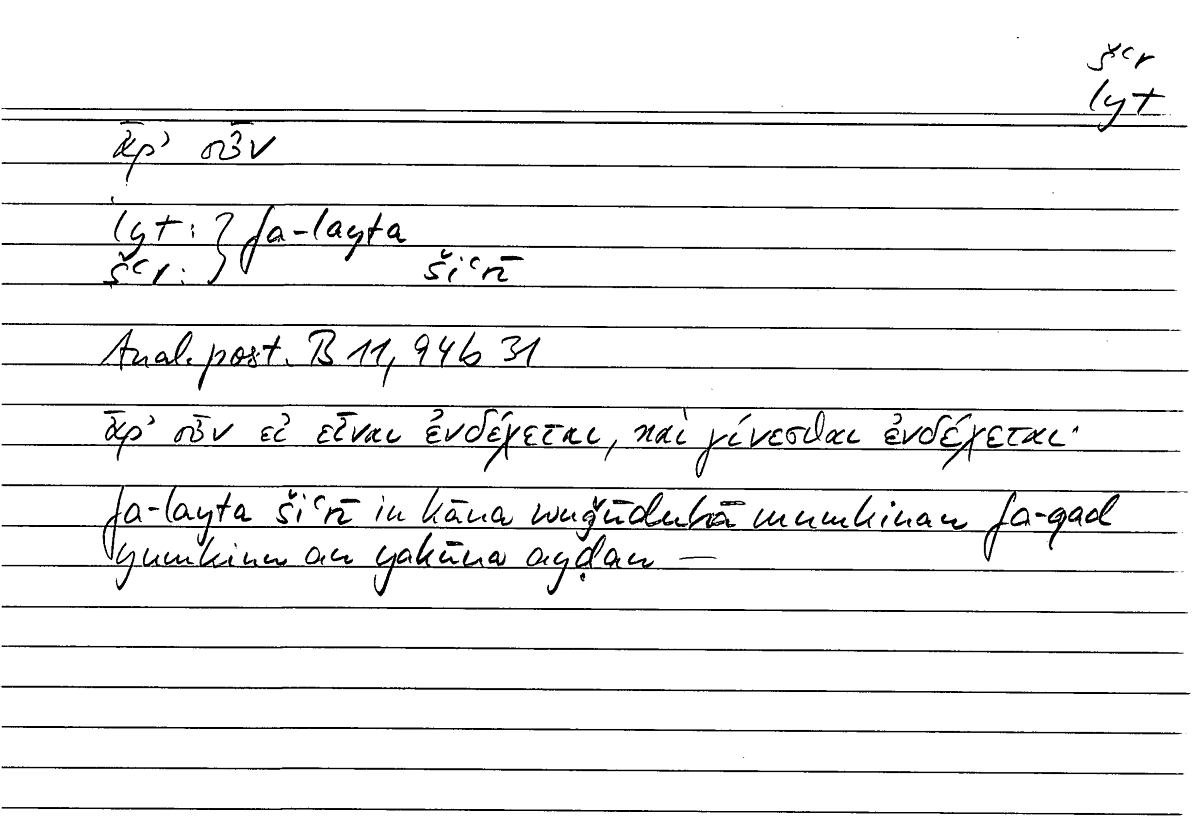 šʿr
lyt
ἆρ᾽ οὖν
lyt: } fa-layta
šʿr: } šiʿrī
Anal. post. B 11, 94b 31
ἆρ᾽ οὖν εἰ εἶναι ἐνδέχεται, καὶ γίνεσθαι ἐνδέχεται·
fa-layta šiʿrī in kāna wuǧūduhā mumkinan fa-qad
yumkinu an yakūna ayḍan —